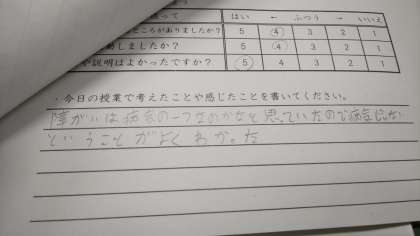 って はい ← ふつう → いいえ
ところがありましたか? 5 4 3 2 1
動しましたか? 5 4 3 2 1
や説明はよかったですか? 5 4 3 2 1
・今日の授業で考えたことや感じたことを書いてください。
障がいは病気の一つなのかなと思っていたので病気じゃない
ということがよくわかった